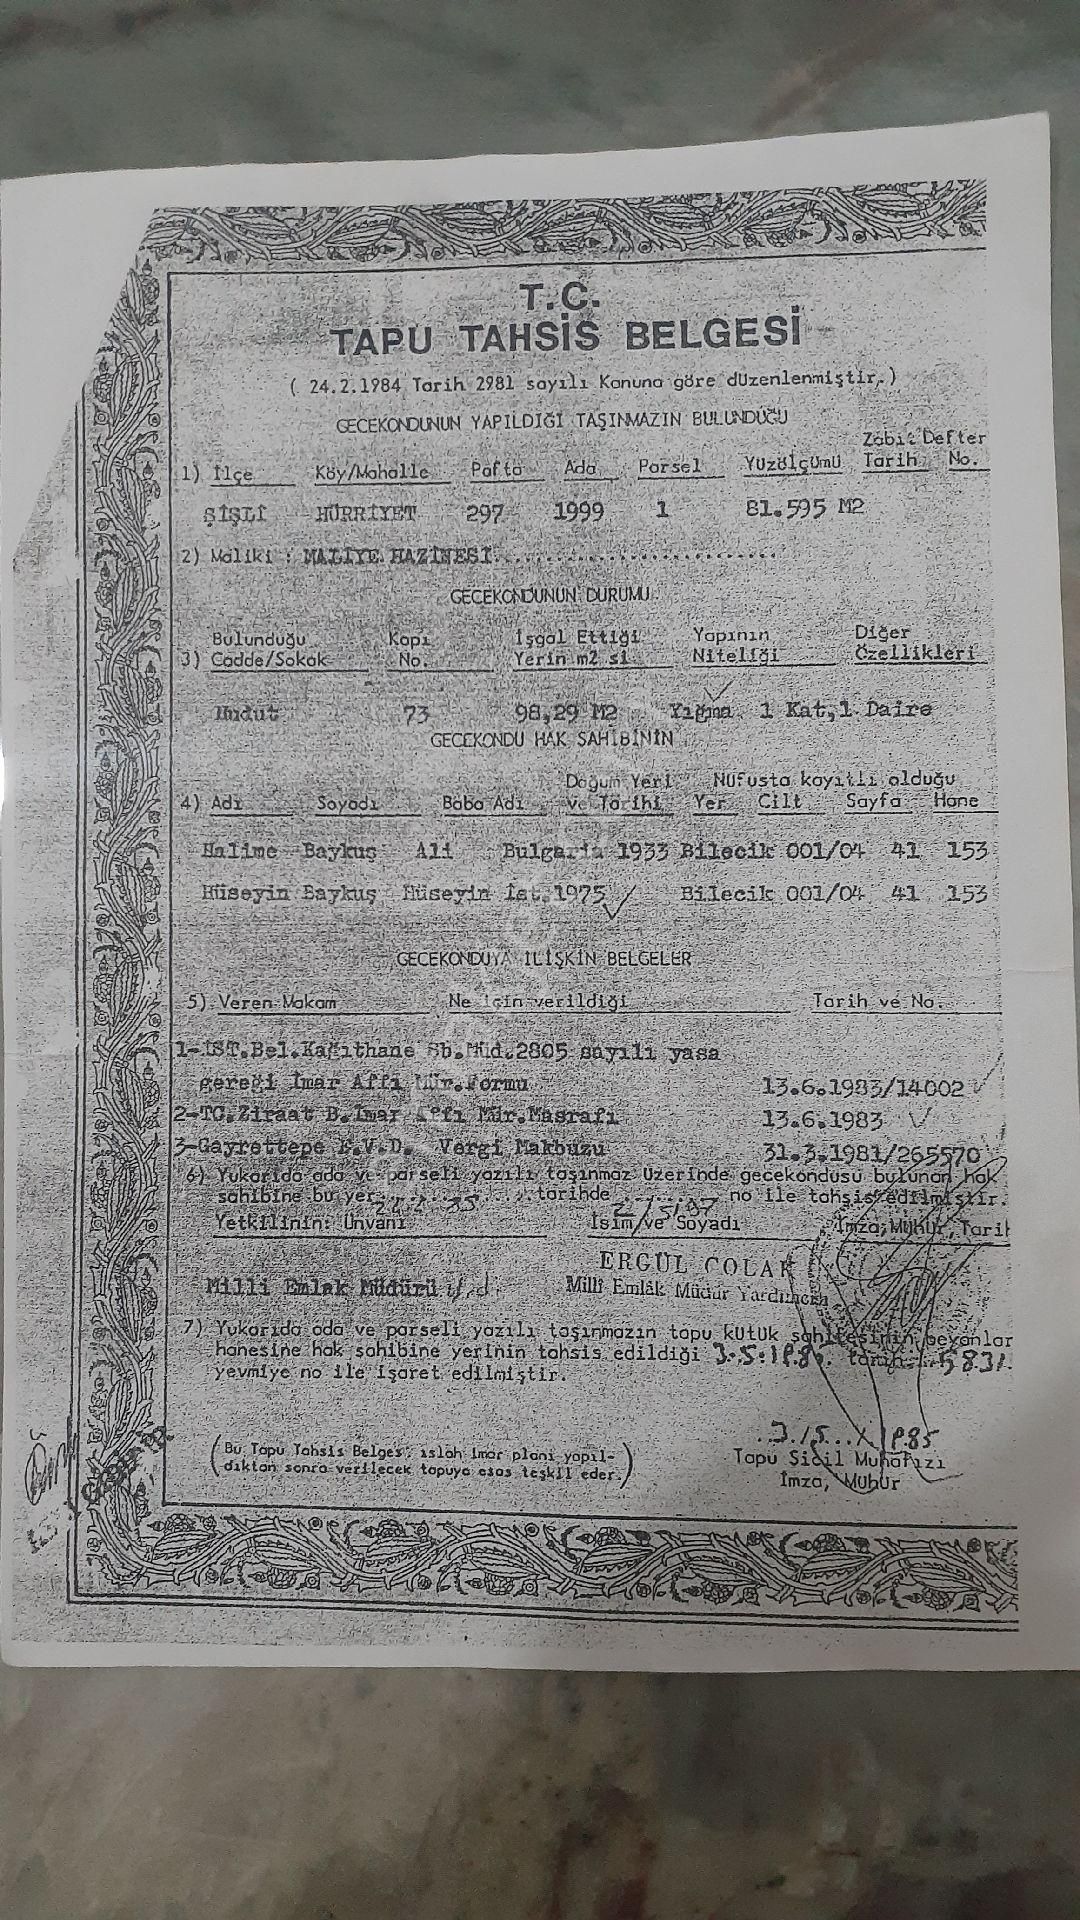 T.C.
TAPU TAHSİS BELGESİ
( 24.2.1984 Tarih 2981 sayılı Kanuna göre düzenlenmiştir.)
GECEKONDUNUN YAPILDIĞI TAŞINMAZIN BULUNDUĞU
1) İlçe Köy/Mahalle Pafta Ada Parsel Yüzölçümü Zabıt Defter Tarih No.
ŞİŞLİ HÜRRİYET 297 1999 1 81.595 M2
2) Maliki : MALİYE HAZİNESİ
GECEKONDUNUN DURUMU
3) Bulunduğu Cadde/Sokak Kapı No. İşgal Ettiği Yerin m2 si Yapının Niteliği Diğer Özellikleri
Hudut 73 98,29 M2 Yığma 1 Kat,1 Daire
GECEKONDU HAK SAHİBİNİN
4) Adı Soyadı Baba Adı Doğum Yeri ve Tarihi Nüfusta kayıtlı olduğu Yer Cilt Sayfa Hane
Halime Baykuş Ali Bulgaria 1933 Bilecik 001/04 41 153
Hüseyin Baykuş Hüseyin İst.1975 Bilecik 001/04 41 153
GECEKONDUYA İLİŞKİN BELGELER
5) Veren Makam Ne için verildiği Tarih ve No.
1-İST.Bel.Kağıthane Şb.Müd.2805 sayılı yasa
gereği İmar Affı Mür.Formu 13.6.1983/14002
2-TC.Ziraat B.İmar Affı Mür.Masrafı 13.6.1983
3-Gayrettepe E.V.D. Vergi Makbuzu 31.3.1981/265570
6) Yukarıda ada ve parseli yazılı taşınmaz üzerinde gecekondusu bulunan hak
sahibine bu yer tarihde no ile tahsis edilmiştir.
Yetkilinin: Ünvanı İsim ve Soyadı İmza, Mühür, Tarih
ERGÜL ÇOLAK
Milli Emlak Müdürü Milli Emlâk Müdür Yardımcısı
7) Yukarıda ada ve parseli yazılı taşınmazın tapu kütük sahifesinin beyanlar
hanesine hak sahibine yerinin tahsis edildiği 3.5.198 tarih 5831
yevmiye no ile işaret edilmiştir.
3/5/1985
(Bu Tapu Tahsis Belgesi, ıslah imar planı yapıl-
dıktan sonra verilecek tapuya esas teşkil eder.)
Tapu Sicil Muhafızı
İmza, Mühür